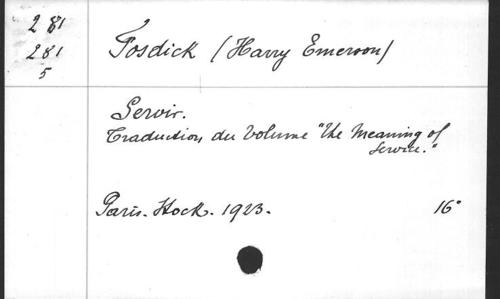 281
281
5
Fosdick (Harry Emerson)
Servir.
Traduction du Volume "the Meaning of
Service."
Paris. Stock. 1923. 16°